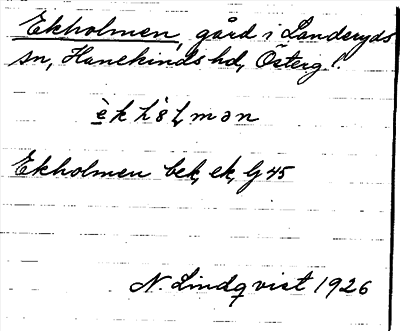 Ekholmen, gård i Landeryds
sn, Hanekinds hd, Österg.
Ekholmen bek, ek, lj 45
N. Lindqvist 1926